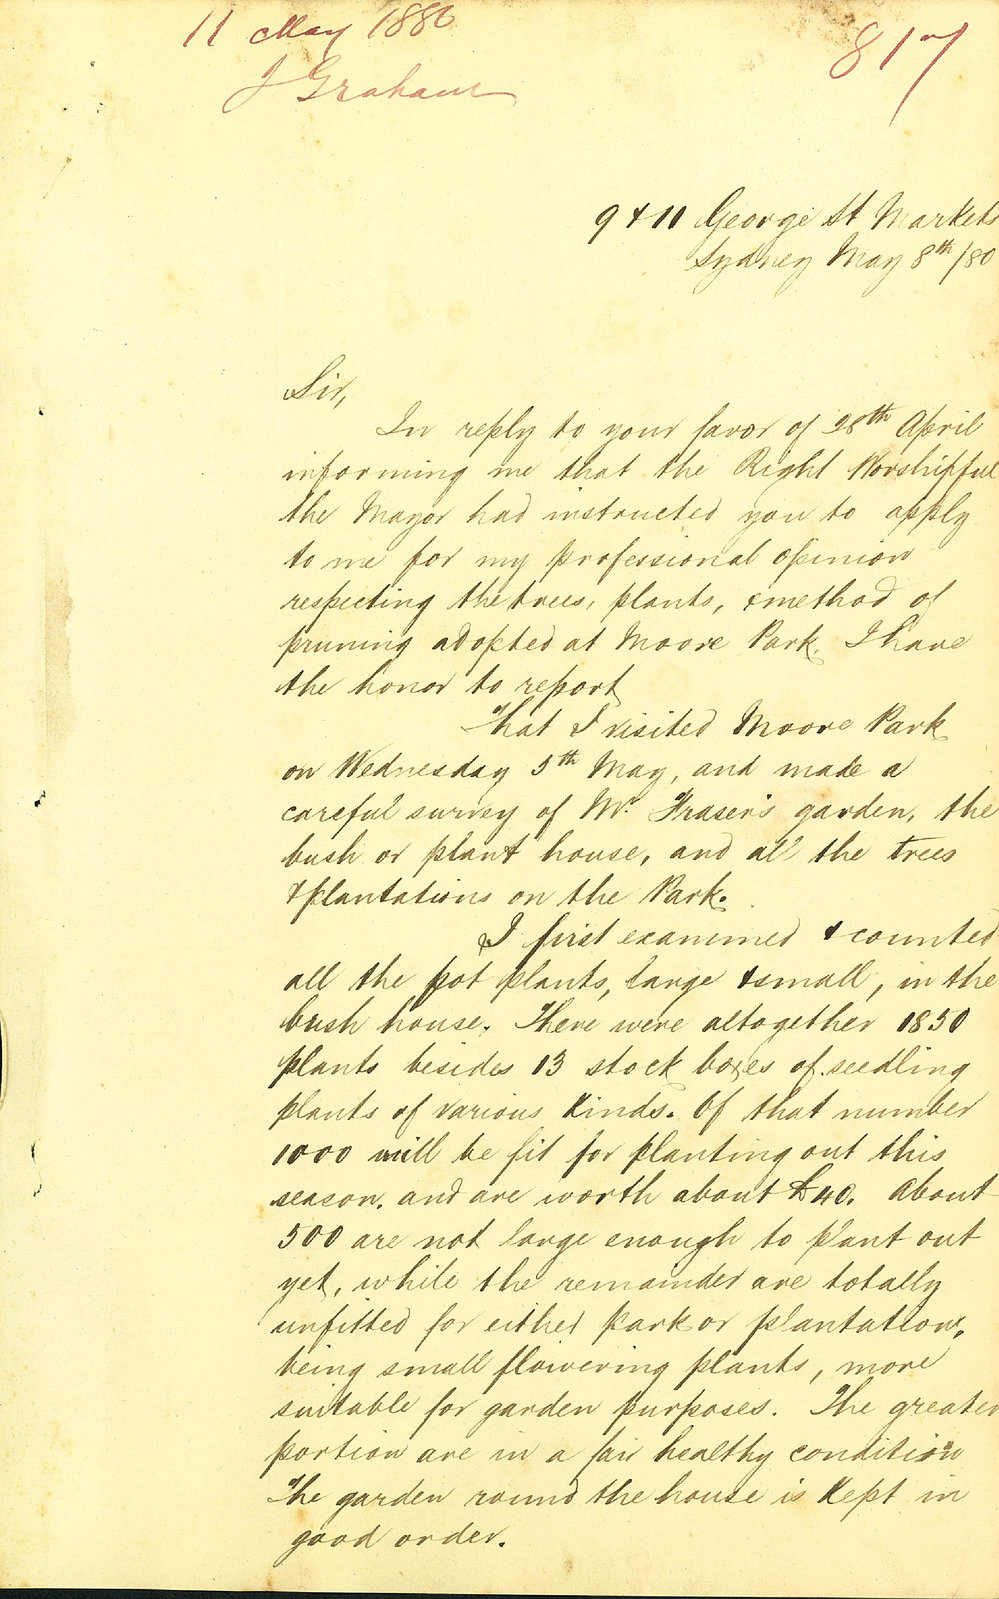 11 May 1880
J Graham
817
9 & 11 George St Markets
Sydney May 8th/80
Sir,
In reply to your favor of 28th April
informing me that the Right Worshipful
the Mayor had instructed you to apply
to me for my professional opinion
respecting the trees, plants, & method of
pruning adopted at Moore Park. I have
the honor to report
That I visited Moore Park
on Wednesday 5th May, and made a
careful survey of Mr. Fraser's garden, the
bush or plant house, and all the trees
& plantations on the Park.
I first examined & counted
all the pot plants, large & small, in the
bush house. There were altogether 1850
plants besides 13 stock boxes of seedling
plants of various kinds. Of that number
1000 will be fit for planting out this
season. and are worth about £40. About
500 are not large enough to plant out
yet, while the remainder are totally
unfitted for either park or plantation,
being small flowering plants, more
suitable for garden purposes. The greater
portion are in a fair healthy condition
The garden round the house is kept in
good order.